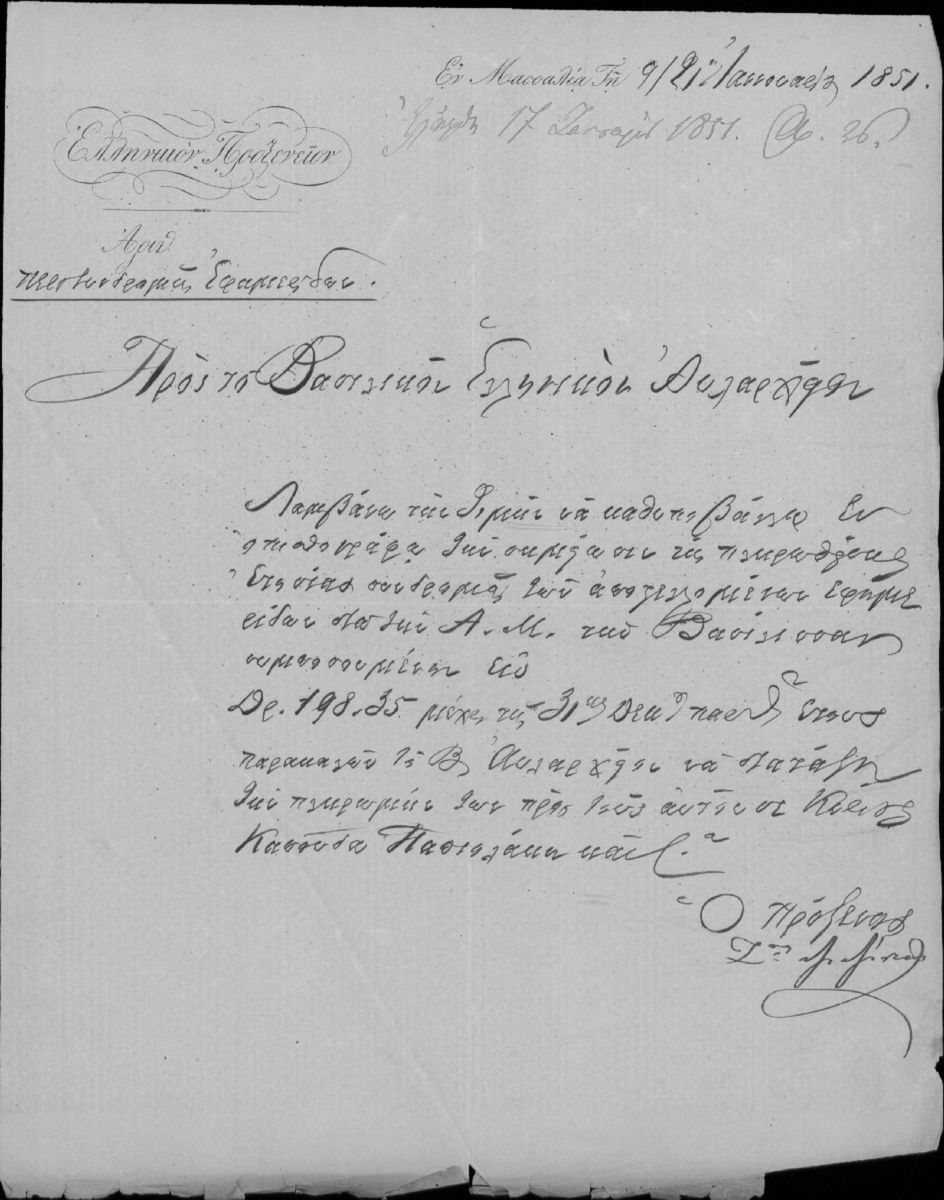 Ἐν Μασσαλίᾳ Τῇ 9/21 Ἰανουαρίου 1851.
Ἐλήφθη 17 Ἰανουαρίου 1851. 26.
Ἑλληνικὸν Προξενεῖον
Ἀριθ
περὶ συνδρομῆς Ἐφημερίδων.
Πρὸς τὸ Βασιλικὸν Ἑλληνικὸν Αὐλαρχεῖον
Λαμβάνω τὴν τιμὴν νὰ καθυποβάλλω ἓν
τὴν σημείωσιν τῆς πληρωθείσης
ἐτησίας συνδρομῆς τῶν ἀποστελλομένων ἐφημε
ρίδων διὰ τὴν Α. Μ. τὴν Βασίλισσαν
συμποσουμένην εἰς
Δρ. 198.35 μέχρι τῆς 31 Δεκ παρελθ ἔτους
παρακαλῶν τὸ Β Αὐλαρχεῖον νὰ διατάξῃ
τὴν πληρωμήν των πρὸς τοὺς αὐτόσε Κυρίους
καὶ
Ὁ Πρόξενος